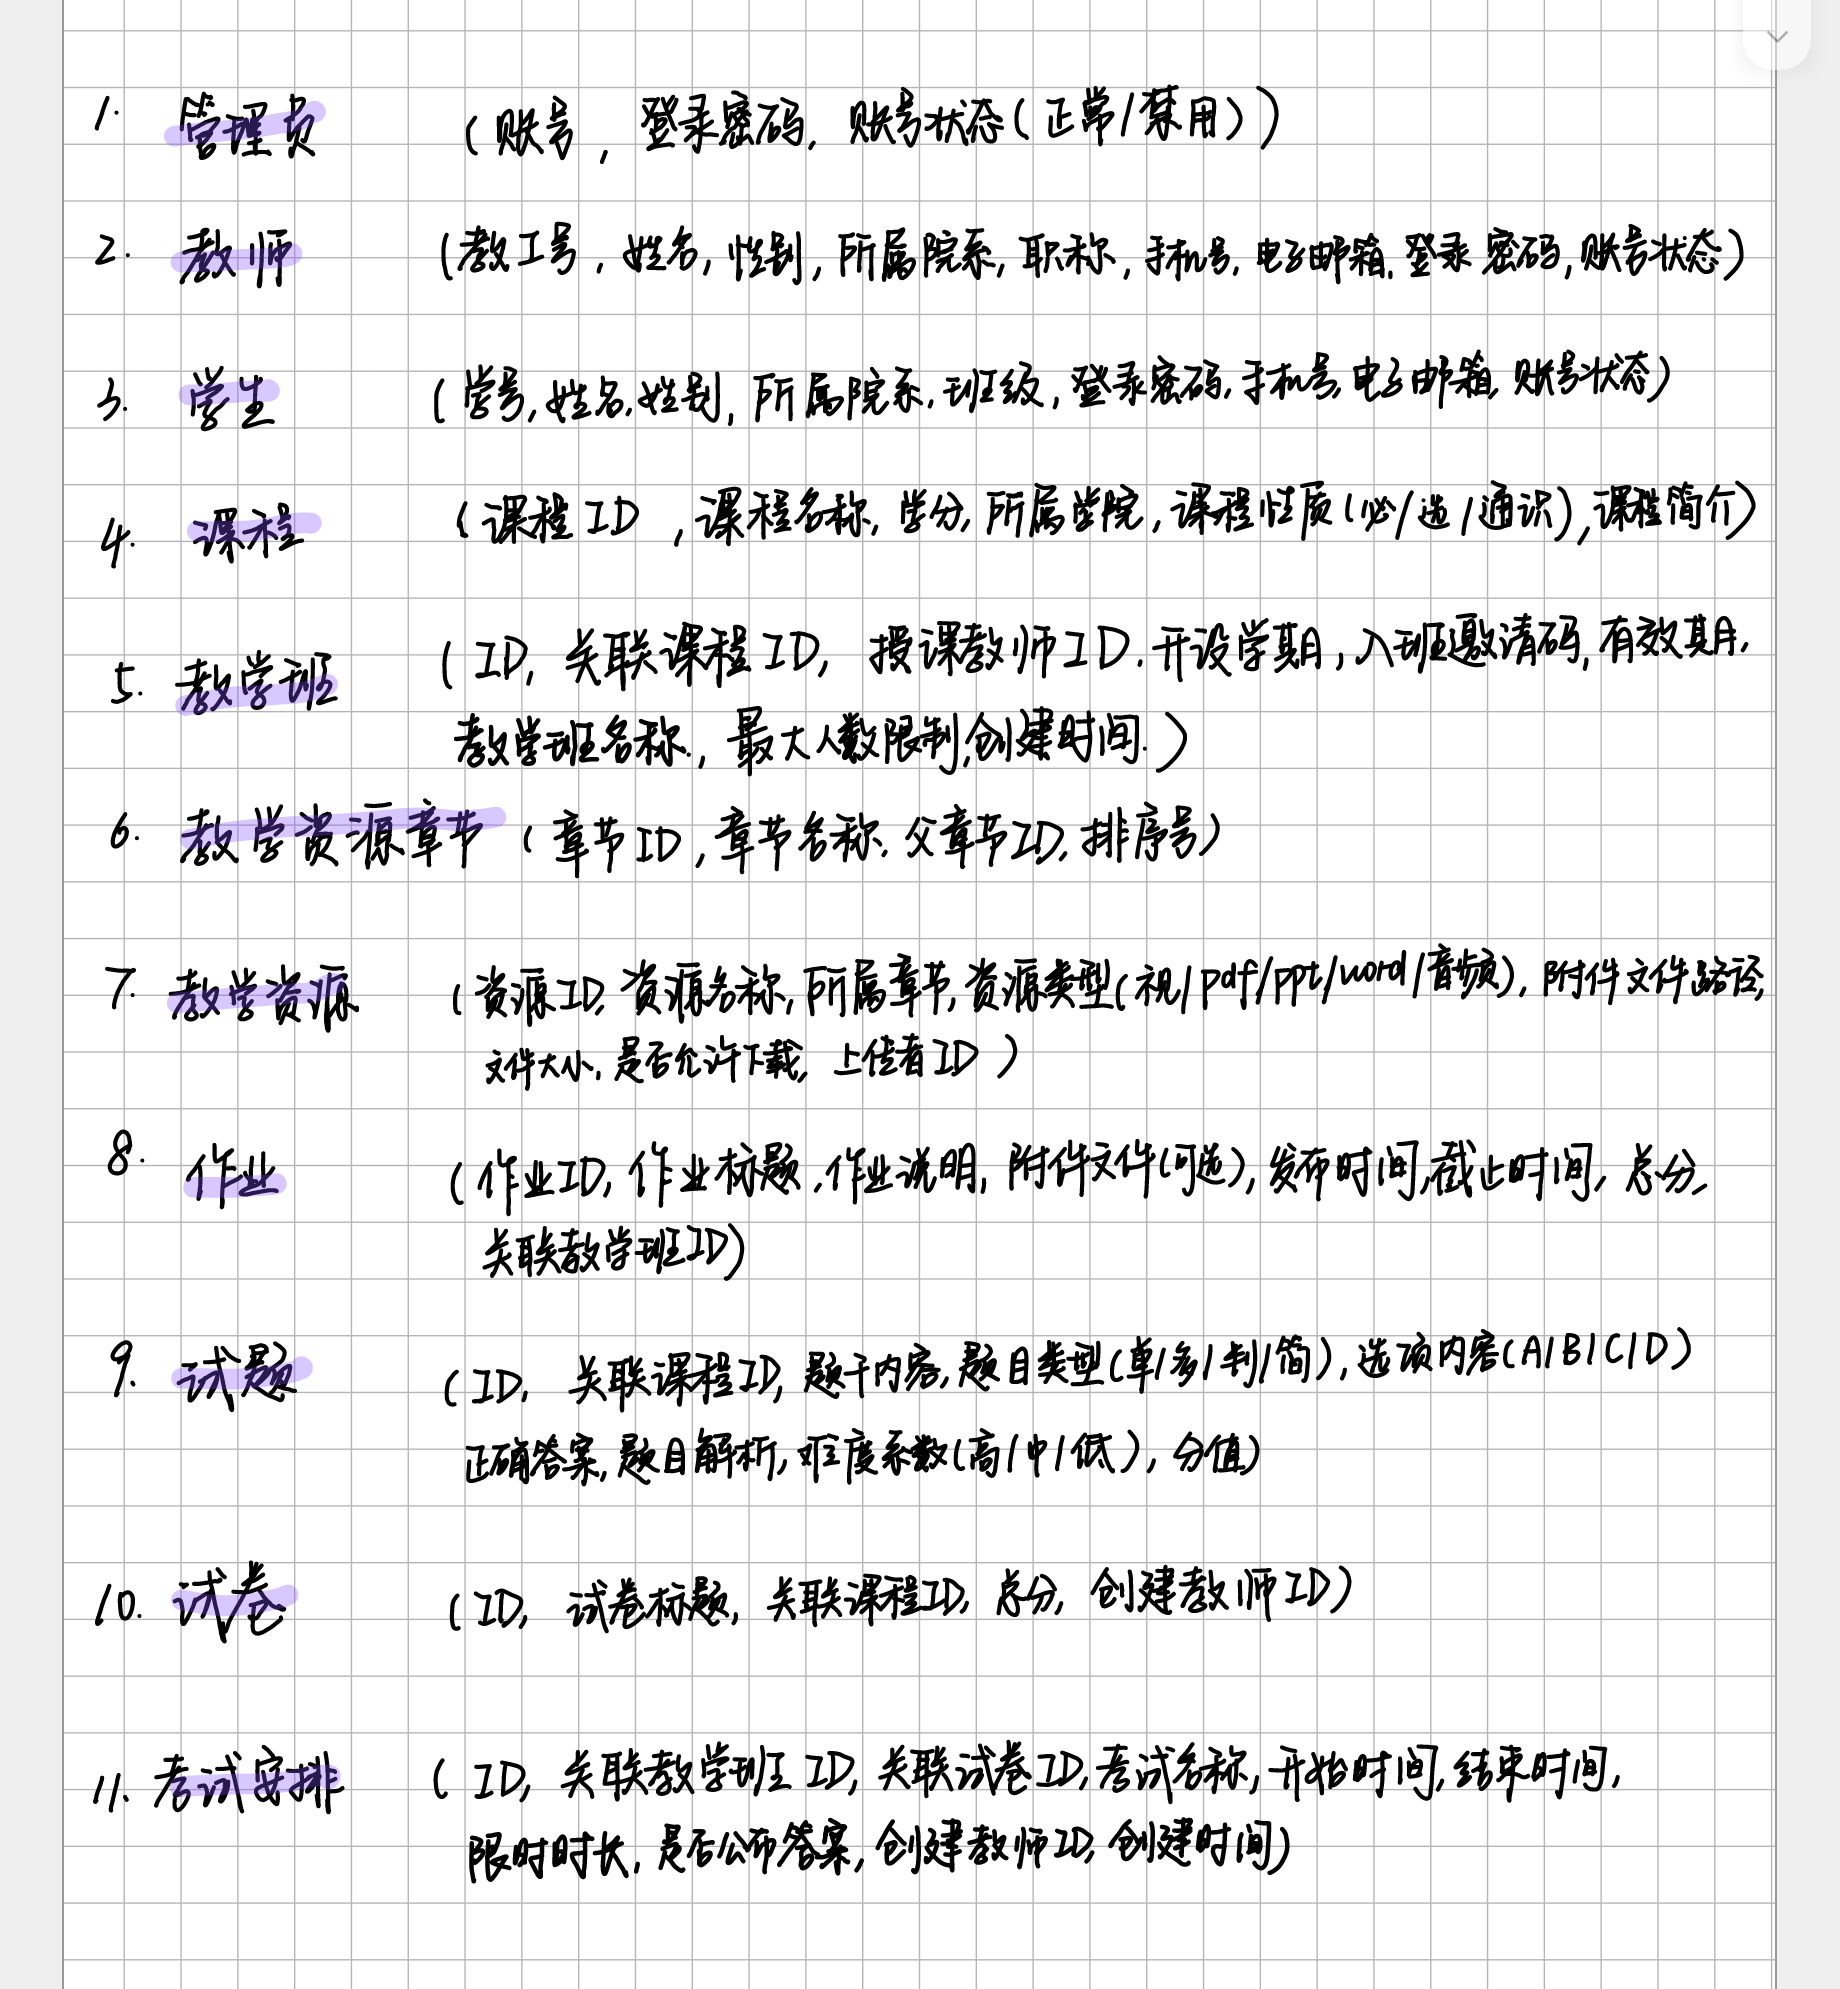 1. 管理员 (账号, 登录密码, 账号状态(正常/禁用))
2. 教师 (教工号, 姓名, 性别, 所属院系, 职称, 手机号, 电子邮箱, 登录密码, 账号状态)
3. 学生 (学号, 姓名, 姓别, 所属院系, 班级, 登录密码, 手机号, 电子邮箱, 账号状态)
4. 课程 (课程ID, 课程名称, 学分, 所属学院, 课程性质(必/选/通识), 课程简介)
5. 教学班 (ID, 关联课程ID, 授课教师ID, 开设学期, 入班邀请码, 有效期,
教学班名称, 最大人数限制, 创建时间.)
6. 教学资源章节 (章节ID, 章节名称, 父章节ID, 排序号)
7. 教学资源 (资源ID, 资源名称, 所属章节, 资源类型(视/pdf/ppt/word/音频), 附件文件路径,
文件大小, 是否允许下载, 上传者ID)
8. 作业 (作业ID, 作业标题, 作业说明, 附件文件(可选), 发布时间, 截止时间, 总分,
关联教学班ID)
9. 试题 (ID, 关联课程ID, 题干内容, 题目类型(单/多/判/简), 选项内容(A/B/C/D)
正确答案, 题目解析, 难度系数(高/中/低), 分值)
10. 试卷 (ID, 试卷标题, 关联课程ID, 总分, 创建教师ID)
11. 考试安排 (ID, 关联教学班ID, 关联试卷ID, 考试名称, 开始时间, 结束时间,
限时时长, 是否公布答案, 创建教师ID, 创建时间)